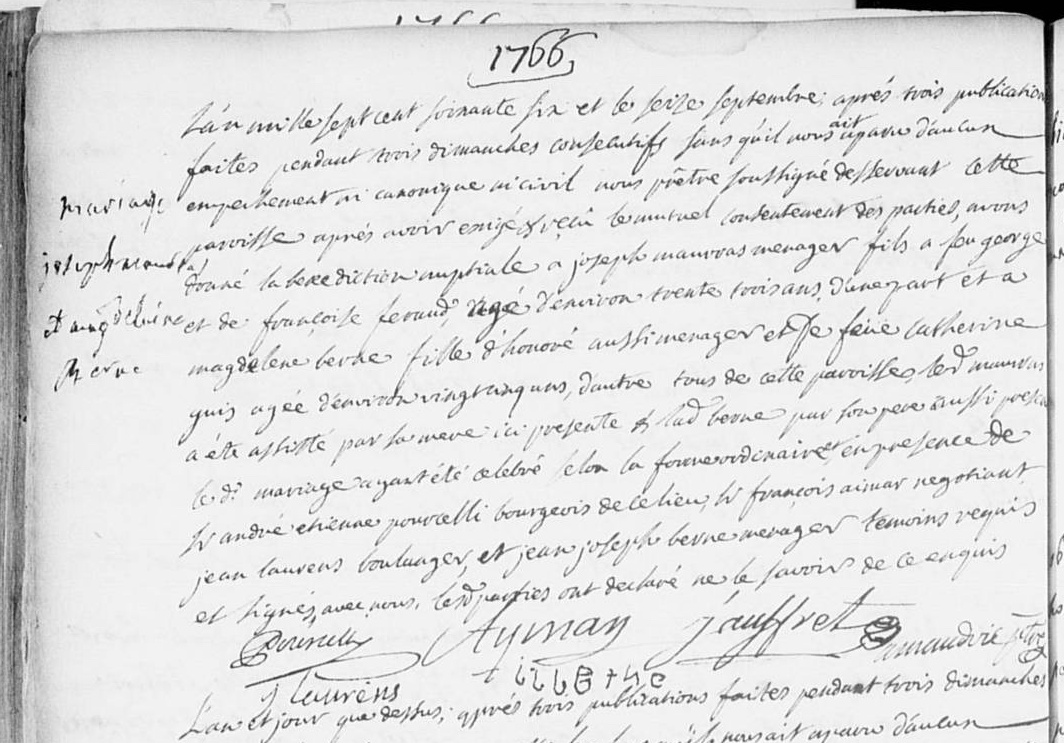 1766
L'an mille sept cent soixante six et le seize septembre, aprés trois publication
faites pendant trois dimanches consecutifs sans qu'il nous ait aparu d'aucun
empechement ni canonique ni civil nous prêtre soussigné desservant cette
mariage
paroisse aprés avoir exigé & reçû le mutuel consentement des parties, avons
joseph mauvras
donné la benediction nuptiale a joseph mauvras menager fils a feu george
& magdeleine
et de françoise feraud, agé d'environ trente trois ans, d'une part et a
Berne
magdelene berne fille d'honoré aussi menager et de feüe catherine
guis agée d'environ vingt cinq ans, d'autre tous de cette paroisse, led. mauvras
a été assisté par sa mere ici presente & lad. berne par son pere aussi present
le d. mariage ayant été celebré selon la forme ordinaire, et en presence de
Sr andré etienne pourcelli bourgeois de ce lieu, Sr françois aimar negotiant,
jean laurens boulanger, et jean joseph berne menager temoins requis
et signés avec nous, lesd. parties ont declaré ne le savoir de ce enquis
Aymar jauffret
j laurens
L'an et jour que dessus, aprés trois publications faites pendant trois dimanches
nous ait aparu d'aucun